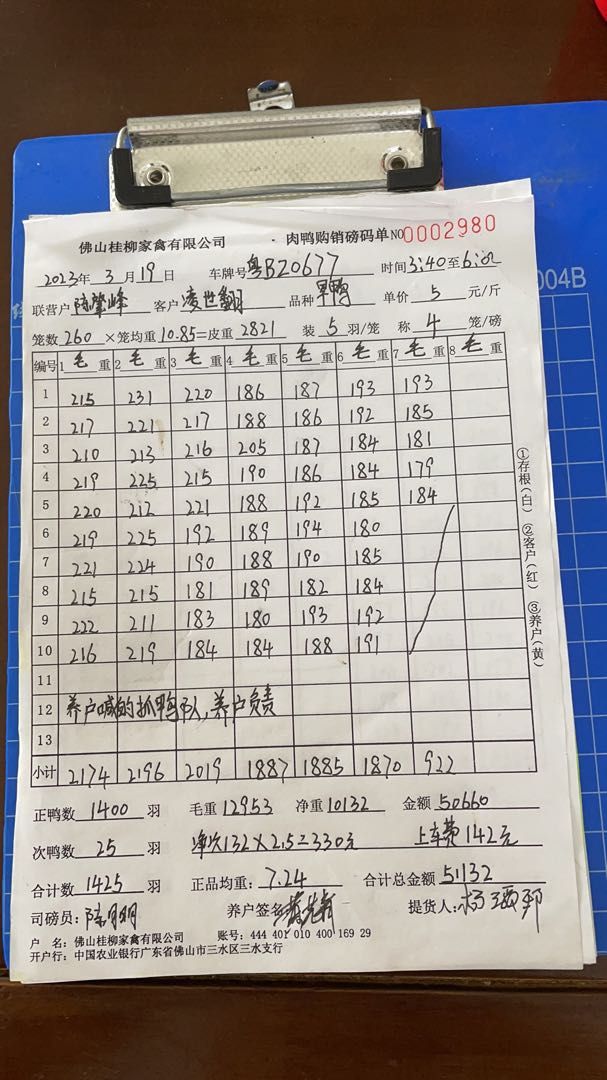 佛山桂柳家禽有限公司 · 肉鸭购销磅码单 NO 0002980
2023年 3月 19日 车牌号 粤BZ0677 时间 3:40 至 6:
联营户 客户 凌世翻 品种 单价 5 元/斤
笼数 260 ×笼均重 10.85=皮重 2821 装 5 羽/笼 称 4 笼/磅
编号 1 毛重 2 毛重 3 毛重 4 毛重 5 毛重 6 毛重 7 毛重 8 毛重
1 215 231 220 186 187 193 193
2 217 221 217 188 186 192 185
3 210 213 216 205 187 184 181
4 219 225 215 190 186 184 179
5 220 212 221 188 192 185 184
6 219 225 192 189 194 180
7 221 224 190 188 190 185
8 215 215 181 189 182 184
9 222 211 183 180 193 192
10 216 219 184 184 188 191
11
12 养户喊的抓鸭队,养户负责
13
小计 2174 2196 2019 1887 1885 1870 922
正鸭数 1400 羽 毛重 12953 净重 10132 金额 50660
次鸭数 25 羽 净次132×2.5=330元 上车费142元
合计数 1425 羽 正品均重: 7.24 合计总金额 51132
司磅员: 养户签名 提货人:
户 名: 佛山桂柳家禽有限公司 账号: 444 401 010 400 169 29
开户行: 中国农业银行广东省佛山市三水区三水支行
①存根(白) ②客户(红) ③养户(黄)
004B